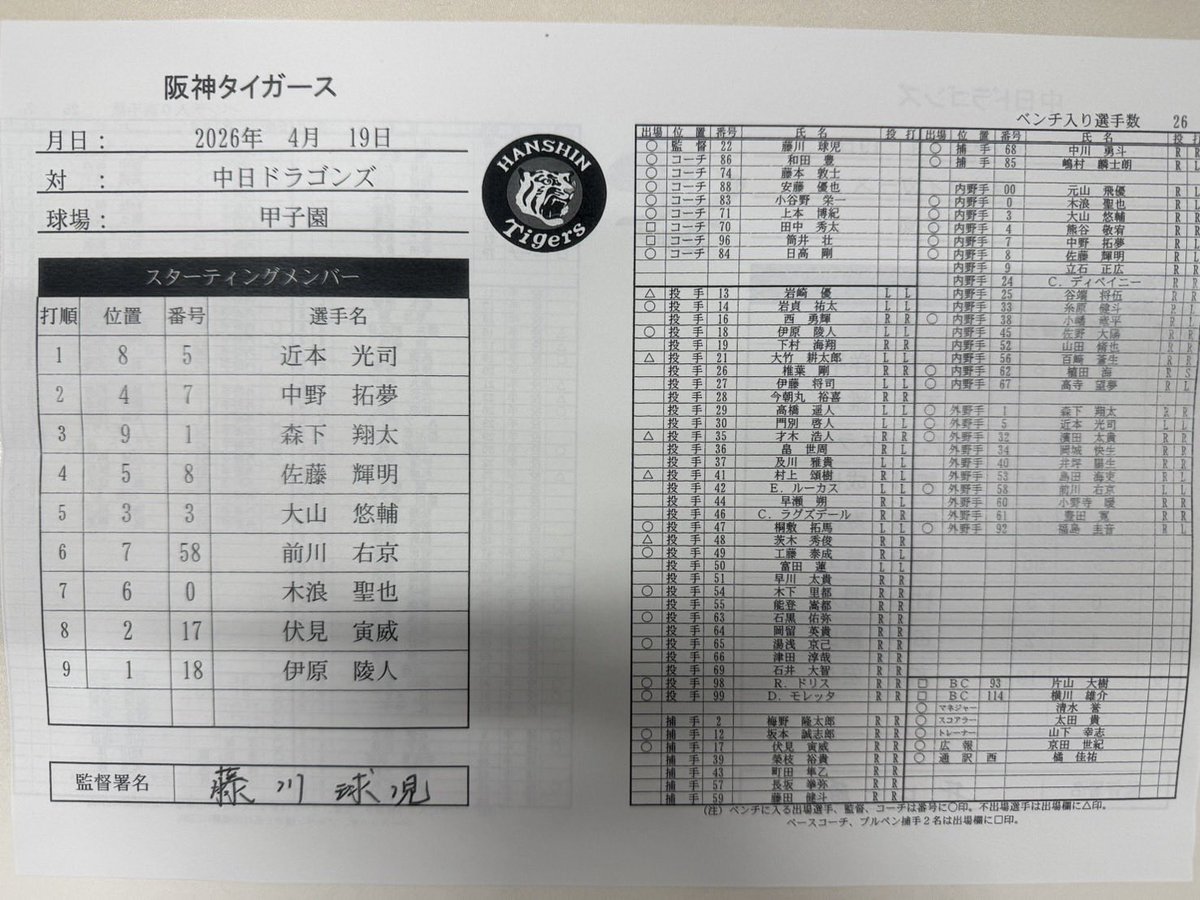 阪神タイガース
月日： 2026年 4月 19日
対 ： 中日ドラゴンズ
球場： 甲子園
HANSHIN Tigers
スターティングメンバー
打順 位置 番号 選手名
1 8 5 近本 光司
2 4 7 中野 拓夢
3 9 1 森下 翔太
4 5 8 佐藤 輝明
5 3 3 大山 悠輔
6 7 58 前川 右京
7 6 0 木浪 聖也
8 2 17 伏見 寅威
9 1 18 伊原 陵人
監督署名 藤川球児
ベンチ入り選手数 26
出場 位置 番号 氏名 投 打
○ 監督 22 藤川 球児
○ コーチ 86 和田 豊
○ コーチ 74 藤本 敦士
○ コーチ 88 安藤 優也
○ コーチ 83 小谷野 栄一
○ コーチ 71 上本 博紀
□ コーチ 70 田中 秀太
□ コーチ 96 筒井 壮
○ コーチ 84 日高 剛
△ 投手 13 岩崎 優 L L
○ 投手 14 岩貞 祐太 L L
投手 16 西 勇輝 R R
○ 投手 18 伊原 陵人 L L
投手 19 下村 海翔 R R
△ 投手 21 大竹 耕太郎 L L
投手 26 椎葉 剛 R R
投手 27 伊藤 将司 L L
投手 28 今朝丸 裕喜 R R
投手 29 高橋 遥人 L L
投手 30 門別 啓人 L L
△ 投手 35 才木 浩人 R R
投手 36 畠 世周 R L
投手 37 及川 雅貴 L L
△ 投手 41 村上 頌樹 R L
投手 42 E．ルーカス L L
投手 44 早瀬 朔 L L
投手 46 C．ラグズデール R R
○ 投手 47 桐敷 拓馬 L L
△ 投手 48 茨木 秀俊 R R
○ 投手 49 工藤 泰成 R L
投手 50 富田 蓮 L L
投手 51 早川 太貴 R R
○ 投手 54 木下 里都 R R
投手 55 能登 嵩都 R R
○ 投手 63 石黒 佑弥 R R
投手 64 岡留 英貴 R R
○ 投手 65 湯浅 京己 R R
投手 66 津田 淳哉 R R
投手 69 石井 大智 R R
○ 投手 98 R．ドリス R R
○ 投手 99 D．モレッタ R R
捕手 2 梅野 隆太郎 R R
○ 捕手 12 坂本 誠志郎 R R
○ 捕手 17 伏見 寅威 R R
捕手 39 榮枝 裕貴 R R
捕手 43 町田 隼乙 R R
捕手 57 長坂 拳弥 R R
捕手 59 藤田 健斗 R R
出場 位置 番号 氏名 投 打
○ 捕手 68 中川 勇斗 R R
○ 捕手 85 嶋村 麟士朗 R
内野手 00 元山 飛優 R
○ 内野手 0 木浪 聖也 R
○ 内野手 3 大山 悠輔 R
○ 内野手 4 熊谷 敬宥 R
○ 内野手 7 中野 拓夢 R
○ 内野手 8 佐藤 輝明 R
内野手 9 立石 正広 R
内野手 24 C．ディベイニー R
内野手 25 谷端 将伍 R
内野手 33 糸原 健斗 R
○ 内野手 38 小幡 竜平 R
内野手 45 佐野 大陽 R
内野手 52 山田 脩也 R
内野手 56 百﨑 蒼生 R
○ 内野手 62 植田 海 R S
○ 内野手 67 高寺 望夢 R L
○ 外野手 1 森下 翔太 R R
○ 外野手 5 近本 光司 L L
○ 外野手 32 濱田 太貴 R R
外野手 34 岡城 快生 R R
外野手 40 井坪 陽生 R R
外野手 53 島田 海吏 R L
○ 外野手 58 前川 右京 L L
外野手 60 小野寺 暖 R R
外野手 61 豊田 寛 R R
○ 外野手 92 福島 圭音 R L
□ BC 93 片山 大樹
□ BC 114 横川 雄介
○ マネジャー 清水 誉
○ スコアラー 太田 貴
○ トレーナー 山下 幸志
○ 広報 京田 世紀
○ 通訳 西 橘 佳祐
(注) ベンチに入る出場選手、監督、コーチは番号に○印。不出場選手は出場欄に△印。
ベースコーチ、ブルペン捕手2名は出場欄に□印。